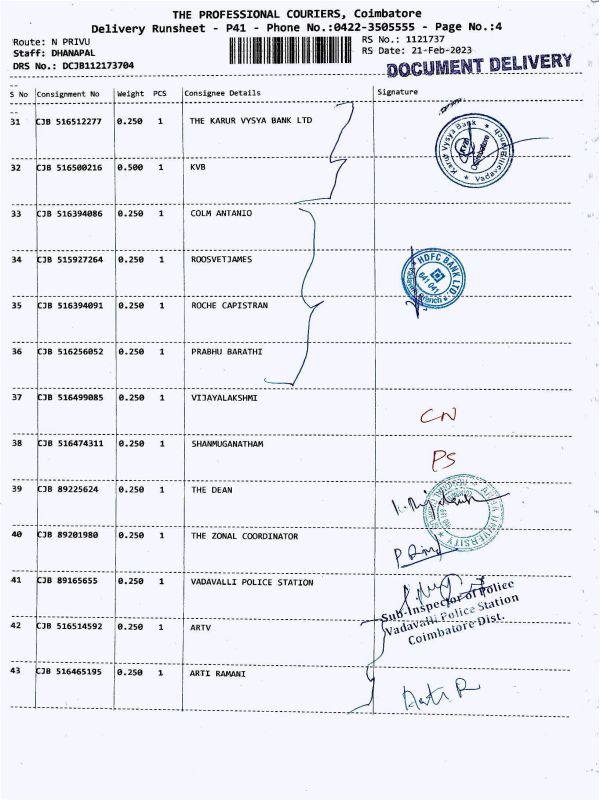 THE PROFESSIONAL COURIERS, Coimbatore
Delivery Runsheet - P41 - Phone No.:0422-3505555 - Page No.:4
Route: N PRIVU RS No.: 1121737
Staff: DHANAPAL RS Date: 21-Feb-2023
DRS No.: DCJB112173704 DOCUMENT DELIVERY
S No Consignment No Weight PCS Consignee Details Signature
31 CJB 516512277 0.250 1 THE KARUR VYSYA BANK LTD
Karur Vysya Bank
KVB
Coimbatore
32 CJB 516500216 0.500 1 KVB
33 CJB 516394086 0.250 1 COLM ANTANIO
34 CJB 515927264 0.250 1 ROOSVETJAMES
HDFC BANK LTD.
641 041
Branch
35 CJB 516394091 0.250 1 ROCHE CAPISTRAN
36 CJB 516256052 0.250 1 PRABHU BARATHI
37 CJB 516499085 0.250 1 VIJAYALAKSHMI
CN
38 CJB 516474311 0.250 1 SHANMUGANATHAM
PS
39 CJB 89225624 0.250 1 THE DEAN
UNIVERSITY
40 CJB 89201980 0.250 1 THE ZONAL COORDINATOR
41 CJB 89165655 0.250 1 VADAVALLI POLICE STATION
Sub-Inspector of Police
Vadavalli Police Station
Coimbatore Dist.
42 CJB 516514592 0.250 1 ARTV
43 CJB 516465195 0.250 1 ARTI RAMANI